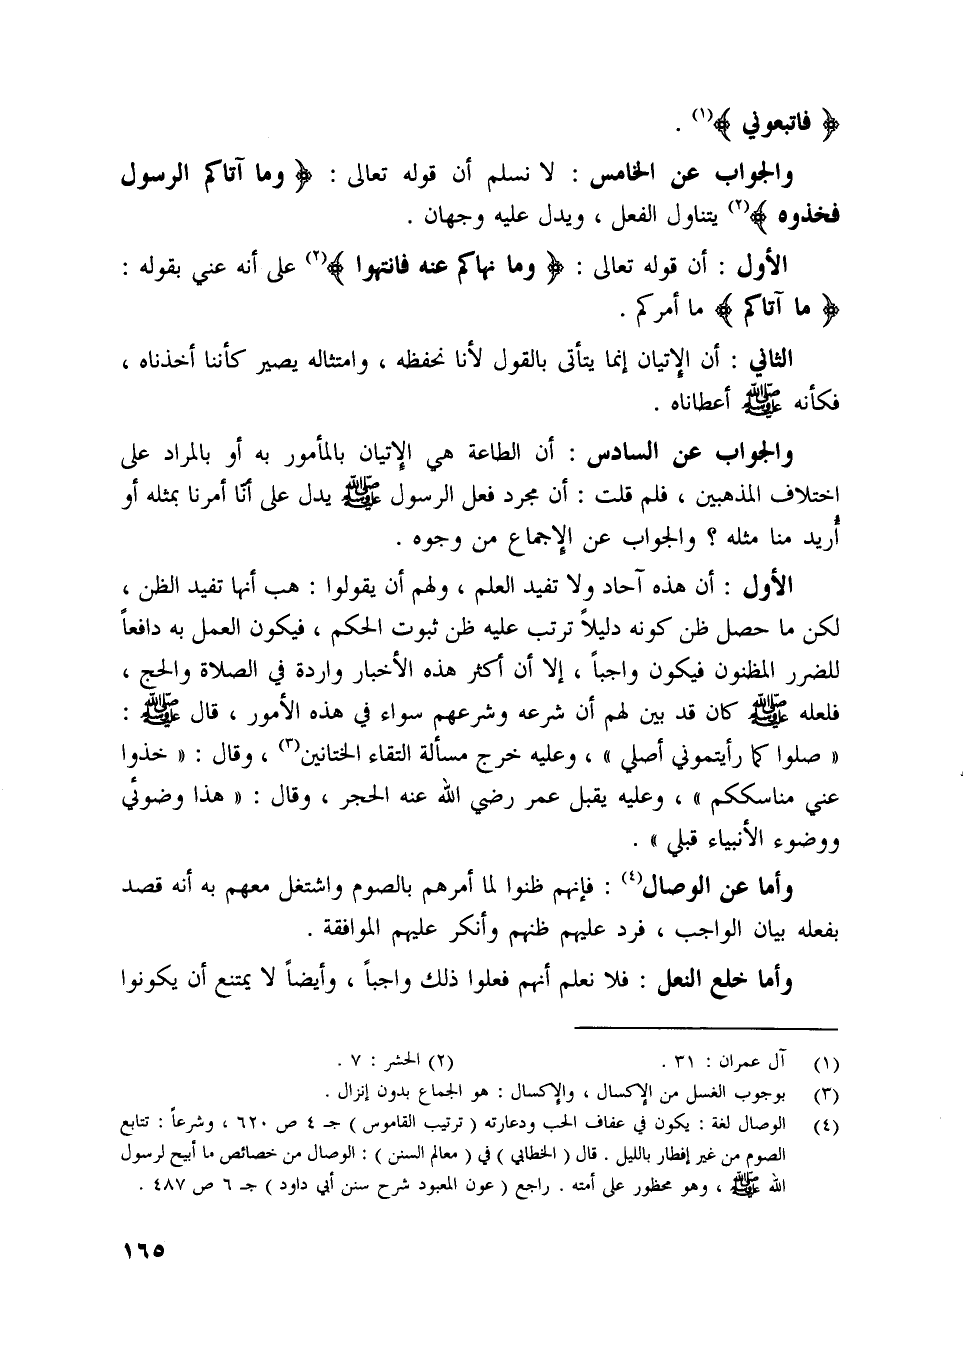 ﴿ فاتبعوني ﴾(١) .
والجواب عن الخامس : لا نسلم أن قوله تعالى : ﴿ وما آتاكم الرسول
فخذوه ﴾(٢) يتناول الفعل ، ويدل عليه وجهان .
الأول : أن قوله تعالى : ﴿ وما نهاكم عنه فانتهوا ﴾(٢) على أنه عني بقوله :
﴿ ما آتاكم ﴾ ما أمركم .
الثاني : أن الإتيان إنما يتأتى بالقول لأنا نحفظه ، وامتثاله يصير كأننا أخذناه ،
فكأنه ﷺ أعطاناه .
والجواب عن السادس : أن الطاعة هي الإتيان بالمأمور به أو بالمراد على
اختلاف المذهبين ، فلم قلت : أن مجرد فعل الرسول ﷺ يدل على أنّا أمرنا بمثله أو
أُريد منا مثله ؟ والجواب عن الإجماع من وجوه .
الأول : أن هذه آحاد ولا تفيد العلم ، ولهم أن يقولوا : هب أنها تفيد الظن ،
لكن ما حصل ظن كونه دليلاً ترتب عليه ظن ثبوت الحكم ، فيكون العمل به دافعاً
للضرر المظنون فيكون واجباً ، إلا أن أكثر هذه الأخبار واردة في الصلاة والحج ،
فلعله ﷺ كان قد بين لهم أن شرعه وشرعهم سواء في هذه الأمور ، قال ﷺ :
« صلوا كما رأيتموني أصلي » ، وعليه خرج مسألة التقاء الختانين(٣) ، وقال : « خذوا
عني مناسككم » ، وعليه يقبل عمر رضي الله عنه الحجر ، وقال : « هذا وضوئي
ووضوء الأنبياء قبلي » .
وأما عن الوصال(٤) : فإنهم ظنوا لما أمرهم بالصوم واشتغل معهم به أنه قصد
بفعله بيان الواجب ، فرد عليهم ظنهم وأنكر عليهم الموافقة .
وأما خلع النعل : فلا نعلم أنهم فعلوا ذلك واجباً ، وأيضاً لا يمتنع أن يكونوا
(١) آل عمران : ٣١ . (٢) الحشر : ٧ .
(٣) بوجوب الغسل من الإكسال ، والإكسال : هو الجماع بدون إنزال .
(٤) الوصال لغة : يكون في عفاف الحب ودعارته ( ترتيب القاموس ) جـ ٤ ص ٦٢٠ ، وشرعاً : تتابع
الصوم من غير إفطار بالليل . قال ( الخطابي ) في ( معالم السنن ) : الوصال من خصائص ما أبيح لرسول
الله ﷺ ، وهو محظور على أمته . راجع ( عون المعبود شرح سنن أبي داود ) جـ ٦ ص ٤٨٧ .
١٦٥